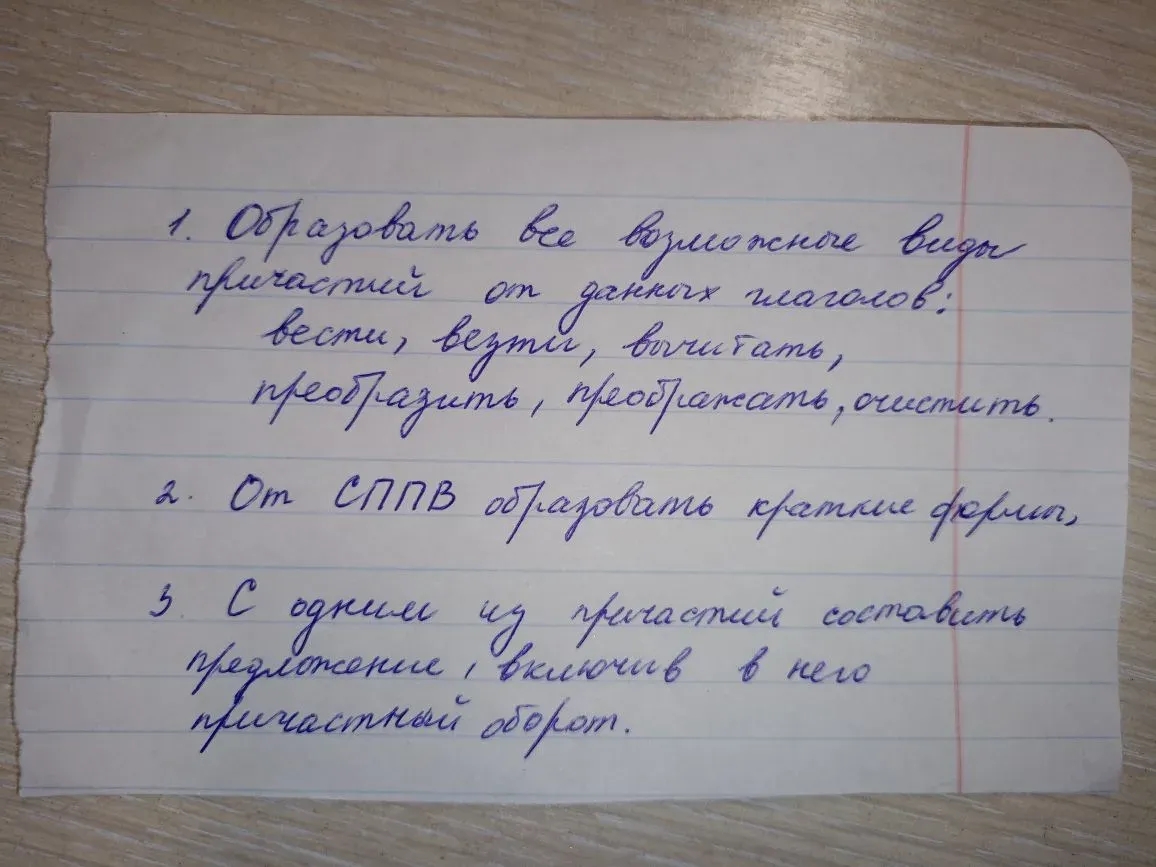 1. Образовать все возможные виды
причастий от данных глаголов:
вести, везти, вычитать,
преобразить, преображать, очистить.
2. От СППВ образовать краткие формы,
3 С одним из причастий составить
предложение, включив в него
причастный оборот.